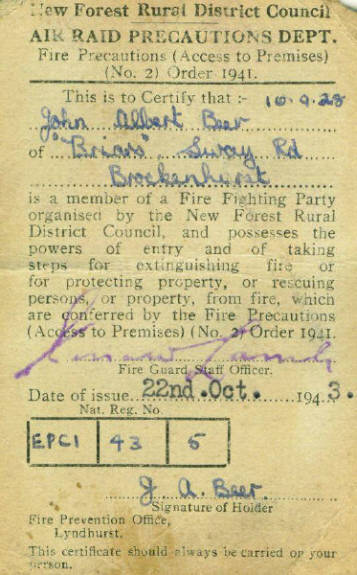 New Forest Rural District Council
AIR RAID PRECAUTIONS DEPT.
Fire Precautions (Access to Premises)
(No. 2) Order 1941.
This is to Certify that :- 10.9.28
John Albert Beer
of "Briars", Sway Rd
Brockenhurst
is a member of a Fire Fighting Party
organised by the New Forest Rural
District Council, and possesses the
powers of entry and of taking
steps for extinguishing fire or
for protecting property, or rescuing
persons, or property, from fire, which
are conferred by the Fire Precautions
(Access to Premises) (No. 2) Order 1941.
Fire Guard Staff Officer.
Date of issue 22nd.Oct. 1943.
Nat. Reg. No.
EPCI 43 5
J. A. Beer.
Signature of Holder
Fire Prevention Office,
Lyndhurst.
This certificate should always be carried on your
person.